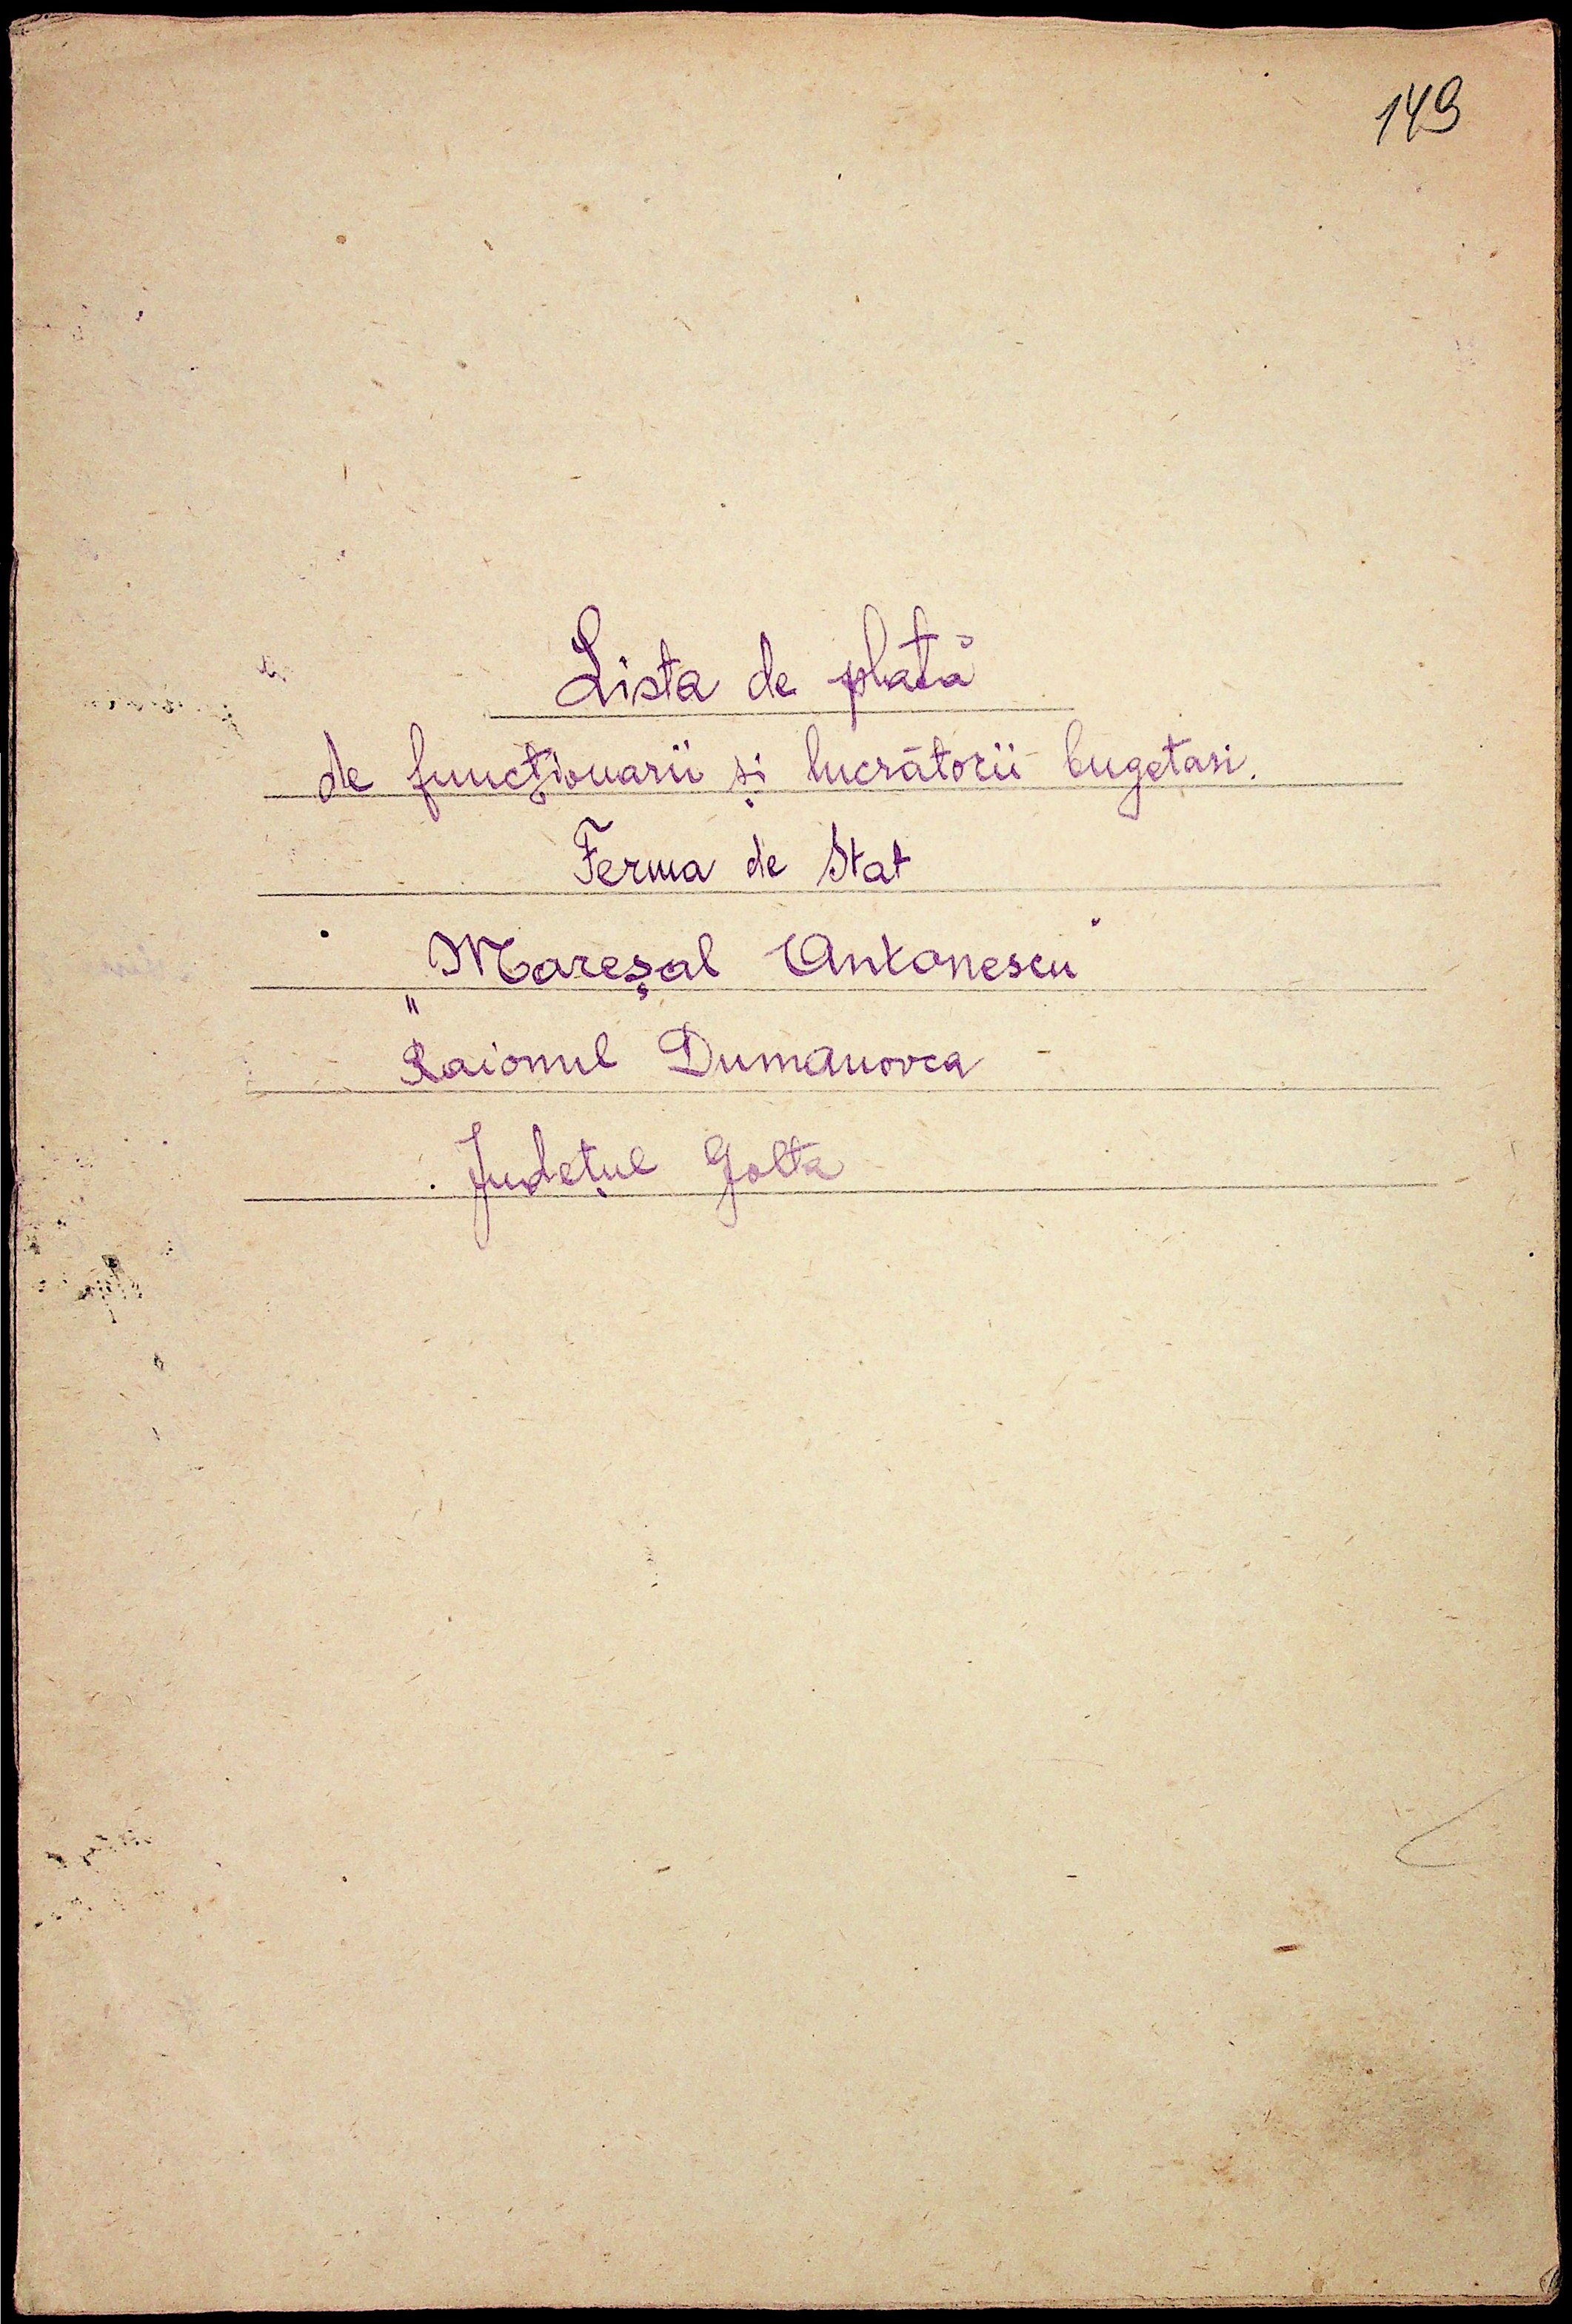 149
Lista de plată
de funcţionarii şi lucrătorii bugetari.
Ferma de Stat
„Mareşal Antonescu"
Raionul Dumanovca
Judeţul Golta